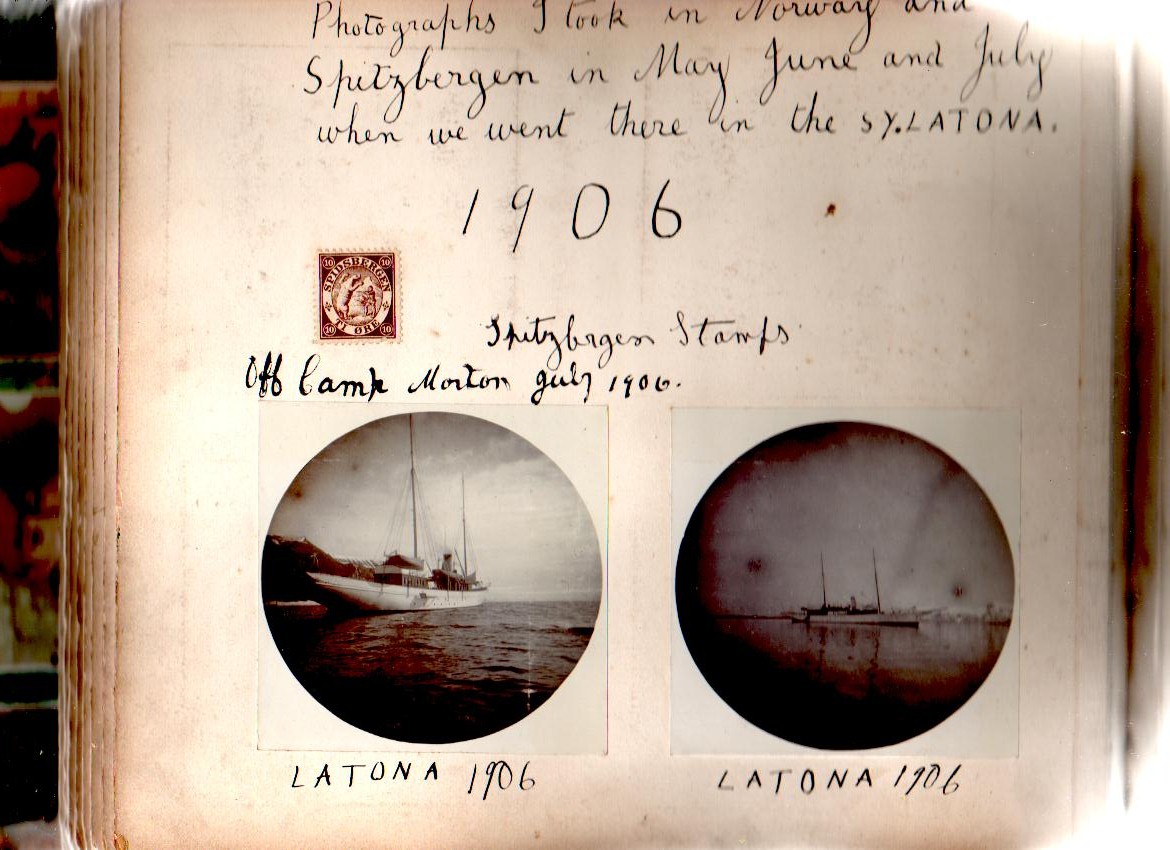 Photographs I took in Norway and
Spitzbergen in May June and July
when we went there in the SY. LATONA.
1906
10 10
SPIDSBERGEN
TI ØRE
10 10
Spitzbergen Stamps
Off Camp Morton July 1906.
LATONA 1906
LATONA 1906